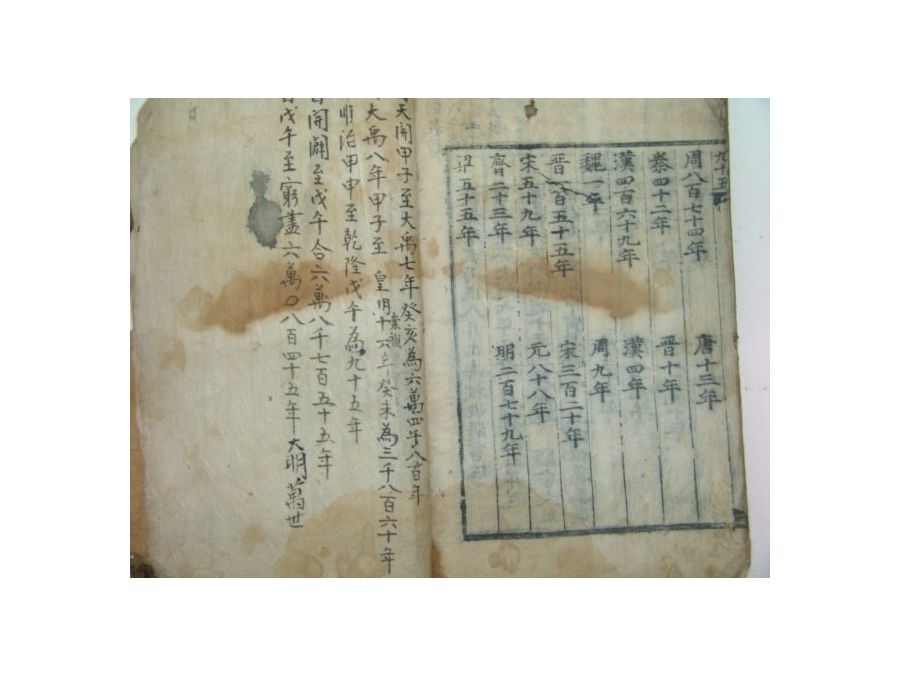 九十五
周八百七十四年 唐十三年
秦四十二年 晋十年
漢四百六十九年 漢四年
魏一年 周九年
晋一百五十五年 宋三百二十年
宋五十九年 元八十八年
齊二十三年 明二百七十九年
梁五十五年
天開甲子至大禹七年癸亥為六萬四千八百年
大禹八年甲子至 皇明崇禎十六年癸未為三千八百六十年
順治甲申至乾隆戊午為九十五年
開闢至戊午合六萬八千七百五十五年
戊午至窮盡六萬〇八百四十五年大明萬世